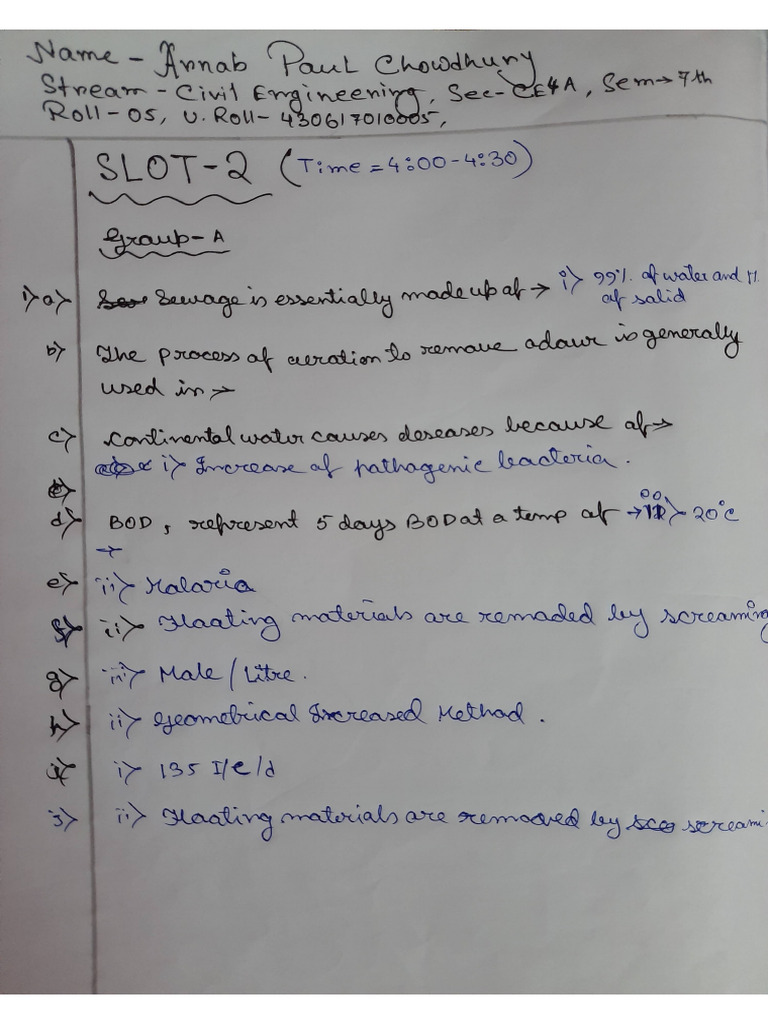 Name - Arnab Paul Chowdhury
Stream - Civil Engineering, Sec- CE4A, Sem→7th
Roll-05, U. Roll- 430617010005,
SLOT-2 (Time = 4:00-4:30)
Group-A
1) a) Sewage is essentially made up of → i) 99% of water and 1%
of solid
b) The process of aeration to remove adour is generally
used in →
c) Continental water causes deseases because of →
i) Increase of pathagenic bacteria.
d) BOD, represent 5 days BOD at a temp of → 20°c
→
e) ii) Malaria
ii) Floating materials are remaded by screaming
g) iii) Mole/Litre.
h) ii) Geometrical Increased Method.
i) 135 I/c/d
j) ii) Floating materials are removed by screami